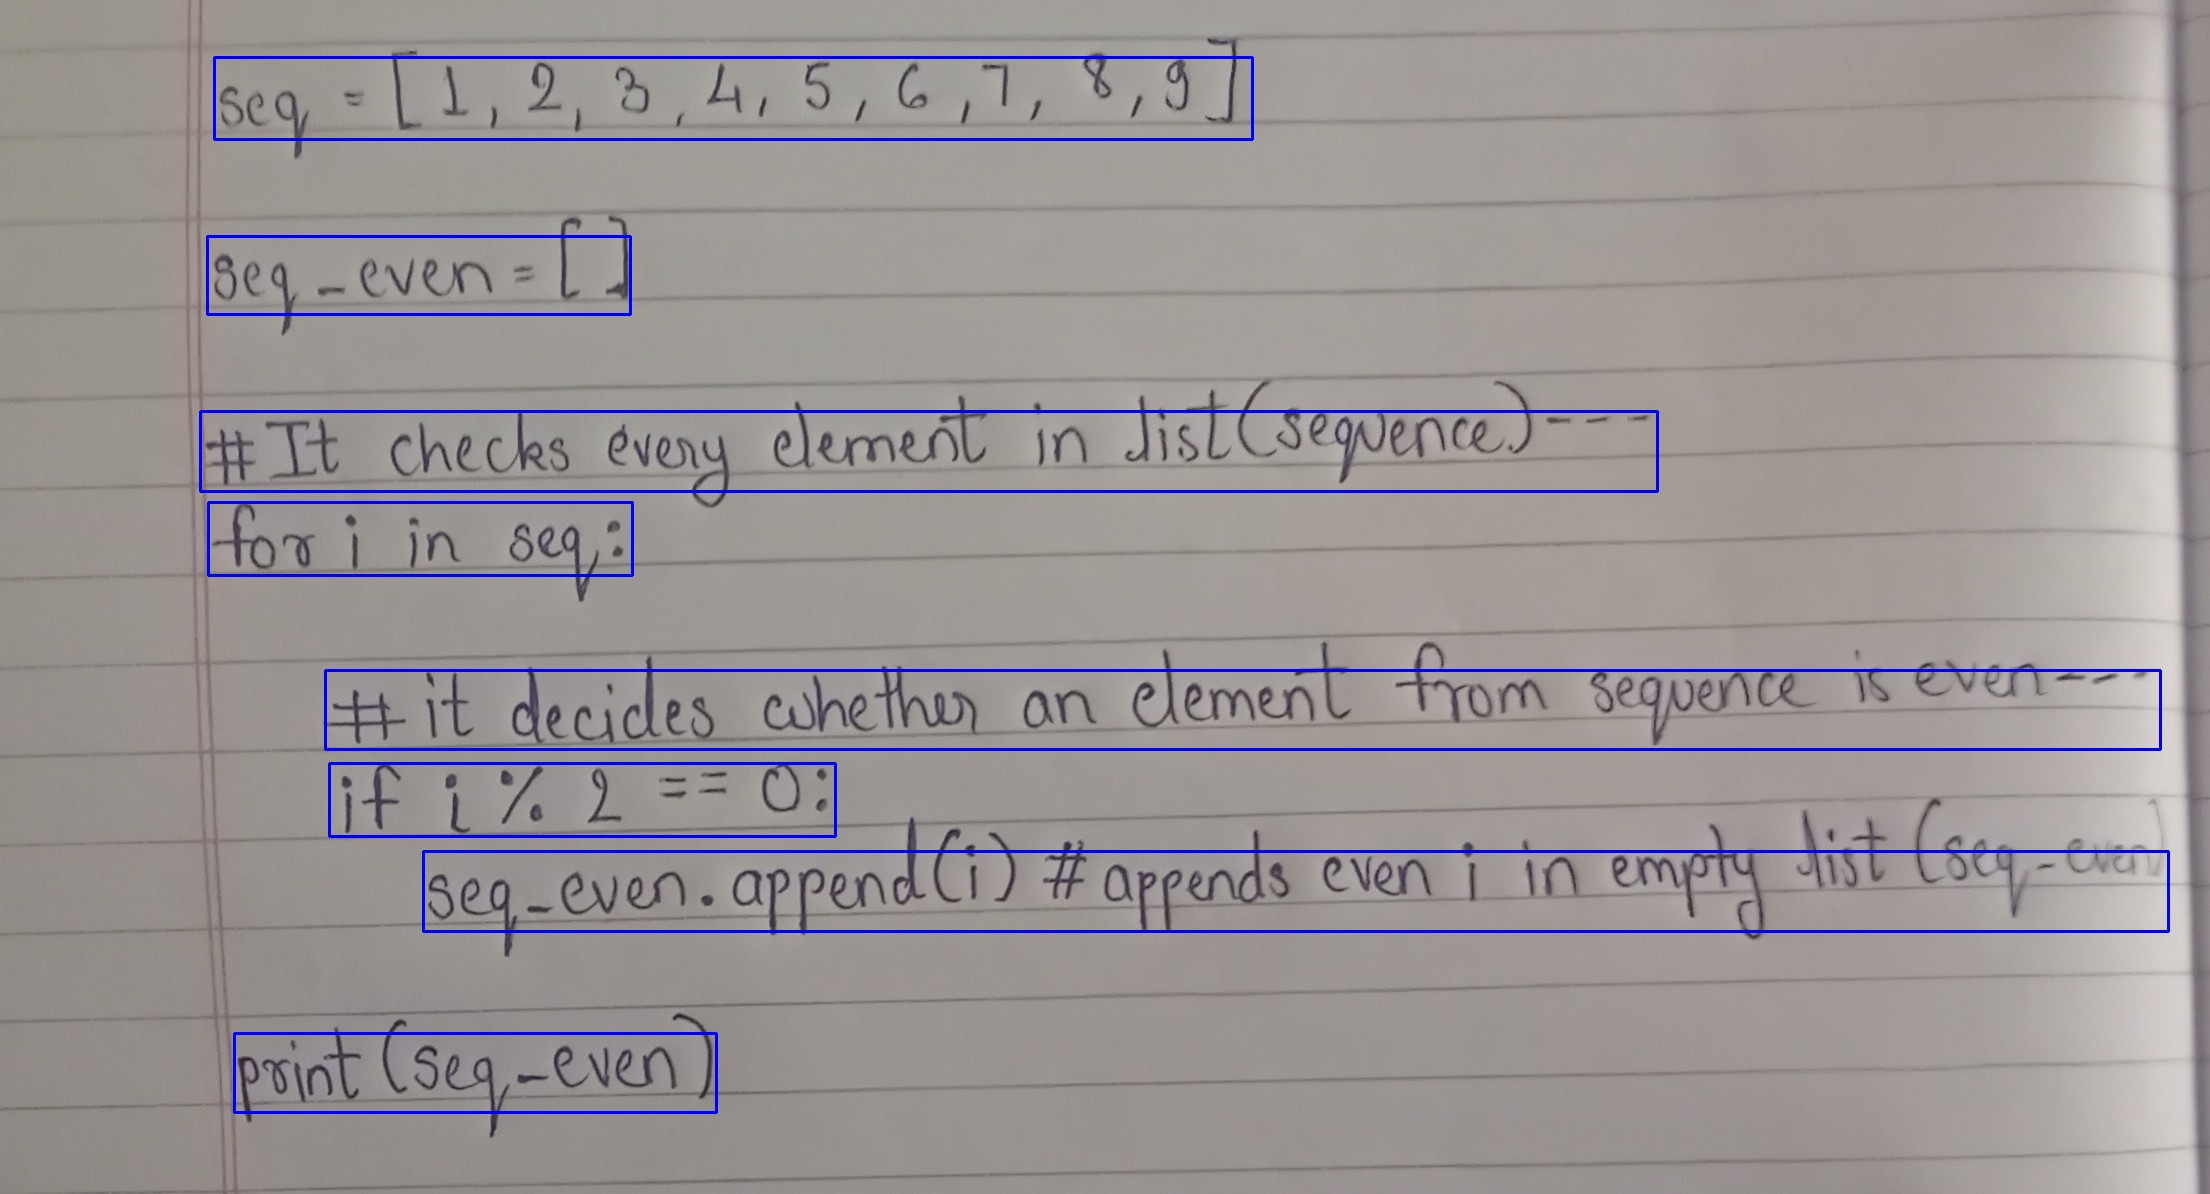 seq = [1, 2, 3, 4, 5, 6, 7, 8, 9]
seq_even = []
#It checks every element in list(sequence)---
for i in seq:
#it decides whether an element from sequence is even---
if i % 2 == 0:
seq_even.append(i) #appends even i in empty list (seq_even)
print(seq_even)